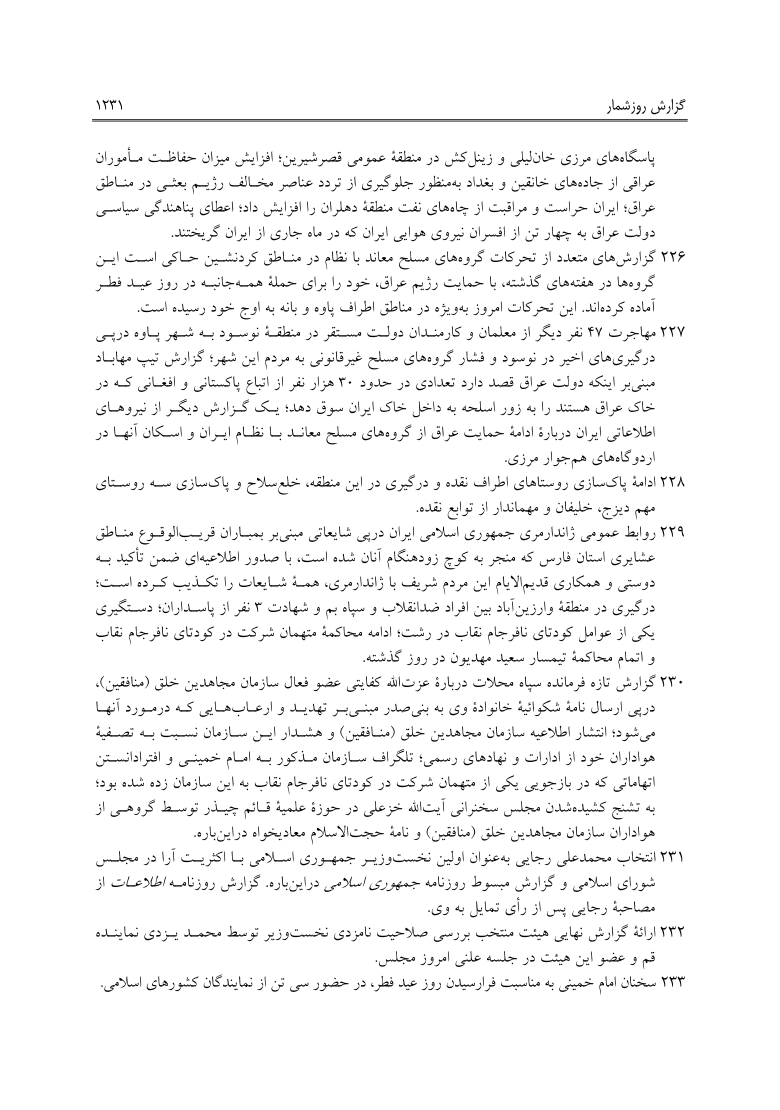 گزارش روزشمار ۱۲۳۱
پاسگاه‌های مرزی خان‌لیلی و زینل‌کش در منطقهٔ عمومی قصرشیرین؛ افزایش میزان حفاظت مأموران
عراقی از جاده‌های خانقین و بغداد به‌منظور جلوگیری از تردد عناصر مخالف رژیم بعثی در مناطق
عراق؛ ایران حراست و مراقبت از چاه‌های نفت منطقهٔ دهلران را افزایش داد؛ اعطای پناهندگی سیاسی
دولت عراق به چهار تن از افسران نیروی هوایی ایران که در ماه جاری از ایران گریختند.
۲۲۶ گزارش‌های متعدد از تحرکات گروه‌های مسلح معاند با نظام در مناطق کردنشین حاکی است این
گروه‌ها در هفته‌های گذشته، با حمایت رژیم عراق، خود را برای حملهٔ همه‌جانبه در روز عید فطر
آماده کرده‌اند. این تحرکات امروز به‌ویژه در مناطق اطراف پاوه و بانه به اوج خود رسیده است.
۲۲۷ مهاجرت ۴۷ نفر دیگر از معلمان و کارمندان دولت مستقر در منطقهٔ نوسود به شهر پاوه درپی
درگیری‌های اخیر در نوسود و فشار گروه‌های مسلح غیرقانونی به مردم این شهر؛ گزارش تیپ مهاباد
مبنی‌بر اینکه دولت عراق قصد دارد تعدادی در حدود ۳۰ هزار نفر از اتباع پاکستانی و افغانی که در
خاک عراق هستند را به زور اسلحه به داخل خاک ایران سوق دهد؛ یک گزارش دیگر از نیروهای
اطلاعاتی ایران دربارهٔ ادامهٔ حمایت عراق از گروه‌های مسلح معاند با نظام ایران و اسکان آنها در
اردوگاه‌های هم‌جوار مرزی.
۲۲۸ ادامهٔ پاک‌سازی روستاهای اطراف نقده و درگیری در این منطقه، خلع‌سلاح و پاک‌سازی سه روستای
مهم دیزج، خلیفان و مهماندار از توابع نقده.
۲۲۹ روابط عمومی ژاندارمری جمهوری اسلامی ایران درپی شایعاتی مبنی‌بر بمباران قریب‌الوقوع مناطق
عشایری استان فارس که منجر به کوچ زودهنگام آنان شده است، با صدور اطلاعیه‌ای ضمن تأکید به
دوستی و همکاری قدیم‌الایام این مردم شریف با ژاندارمری، همهٔ شایعات را تکذیب کرده است؛
درگیری در منطقهٔ وارزین‌آباد بین افراد ضدانقلاب و سپاه بم و شهادت ۳ نفر از پاسداران؛ دستگیری
یکی از عوامل کودتای نافرجام نقاب در رشت؛ ادامه محاکمهٔ متهمان شرکت در کودتای نافرجام نقاب
و اتمام محاکمهٔ تیمسار سعید مهدیون در روز گذشته.
۲۳۰ گزارش تازه فرمانده سپاه محلات دربارهٔ عزت‌الله کفایتی عضو فعال سازمان مجاهدین خلق (منافقین)،
درپی ارسال نامهٔ شکوائیهٔ خانوادهٔ وی به بنی‌صدر مبنی‌بر تهدید و ارعاب‌هایی که درمورد آنها
می‌شود؛ انتشار اطلاعیه سازمان مجاهدین خلق (منافقین) و هشدار این سازمان نسبت به تصفیهٔ
هواداران خود از ادارات و نهادهای رسمی؛ تلگراف سازمان مذکور به امام خمینی و افترادانستن
اتهاماتی که در بازجویی یکی از متهمان شرکت در کودتای نافرجام نقاب به این سازمان زده شده بود؛
به تشنج کشیده‌شدن مجلس سخنرانی آیت‌الله خزعلی در حوزهٔ علمیهٔ قائم چیذر توسط گروهی از
هواداران سازمان مجاهدین خلق (منافقین) و نامهٔ حجت‌الاسلام معادیخواه دراین‌باره.
۲۳۱ انتخاب محمدعلی رجایی به‌عنوان اولین نخست‌وزیر جمهوری اسلامی با اکثریت آرا در مجلس
شورای اسلامی و گزارش مبسوط روزنامه جمهوری اسلامی دراین‌باره. گزارش روزنامه اطلاعات از
مصاحبهٔ رجایی پس از رأی تمایل به وی.
۲۳۲ ارائهٔ گزارش نهایی هیئت منتخب بررسی صلاحیت نامزدی نخست‌وزیر توسط محمد یزدی نماینده
قم و عضو این هیئت در جلسه علنی امروز مجلس.
۲۳۳ سخنان امام خمینی به مناسبت فرارسیدن روز عید فطر، در حضور سی تن از نمایندگان کشورهای اسلامی.